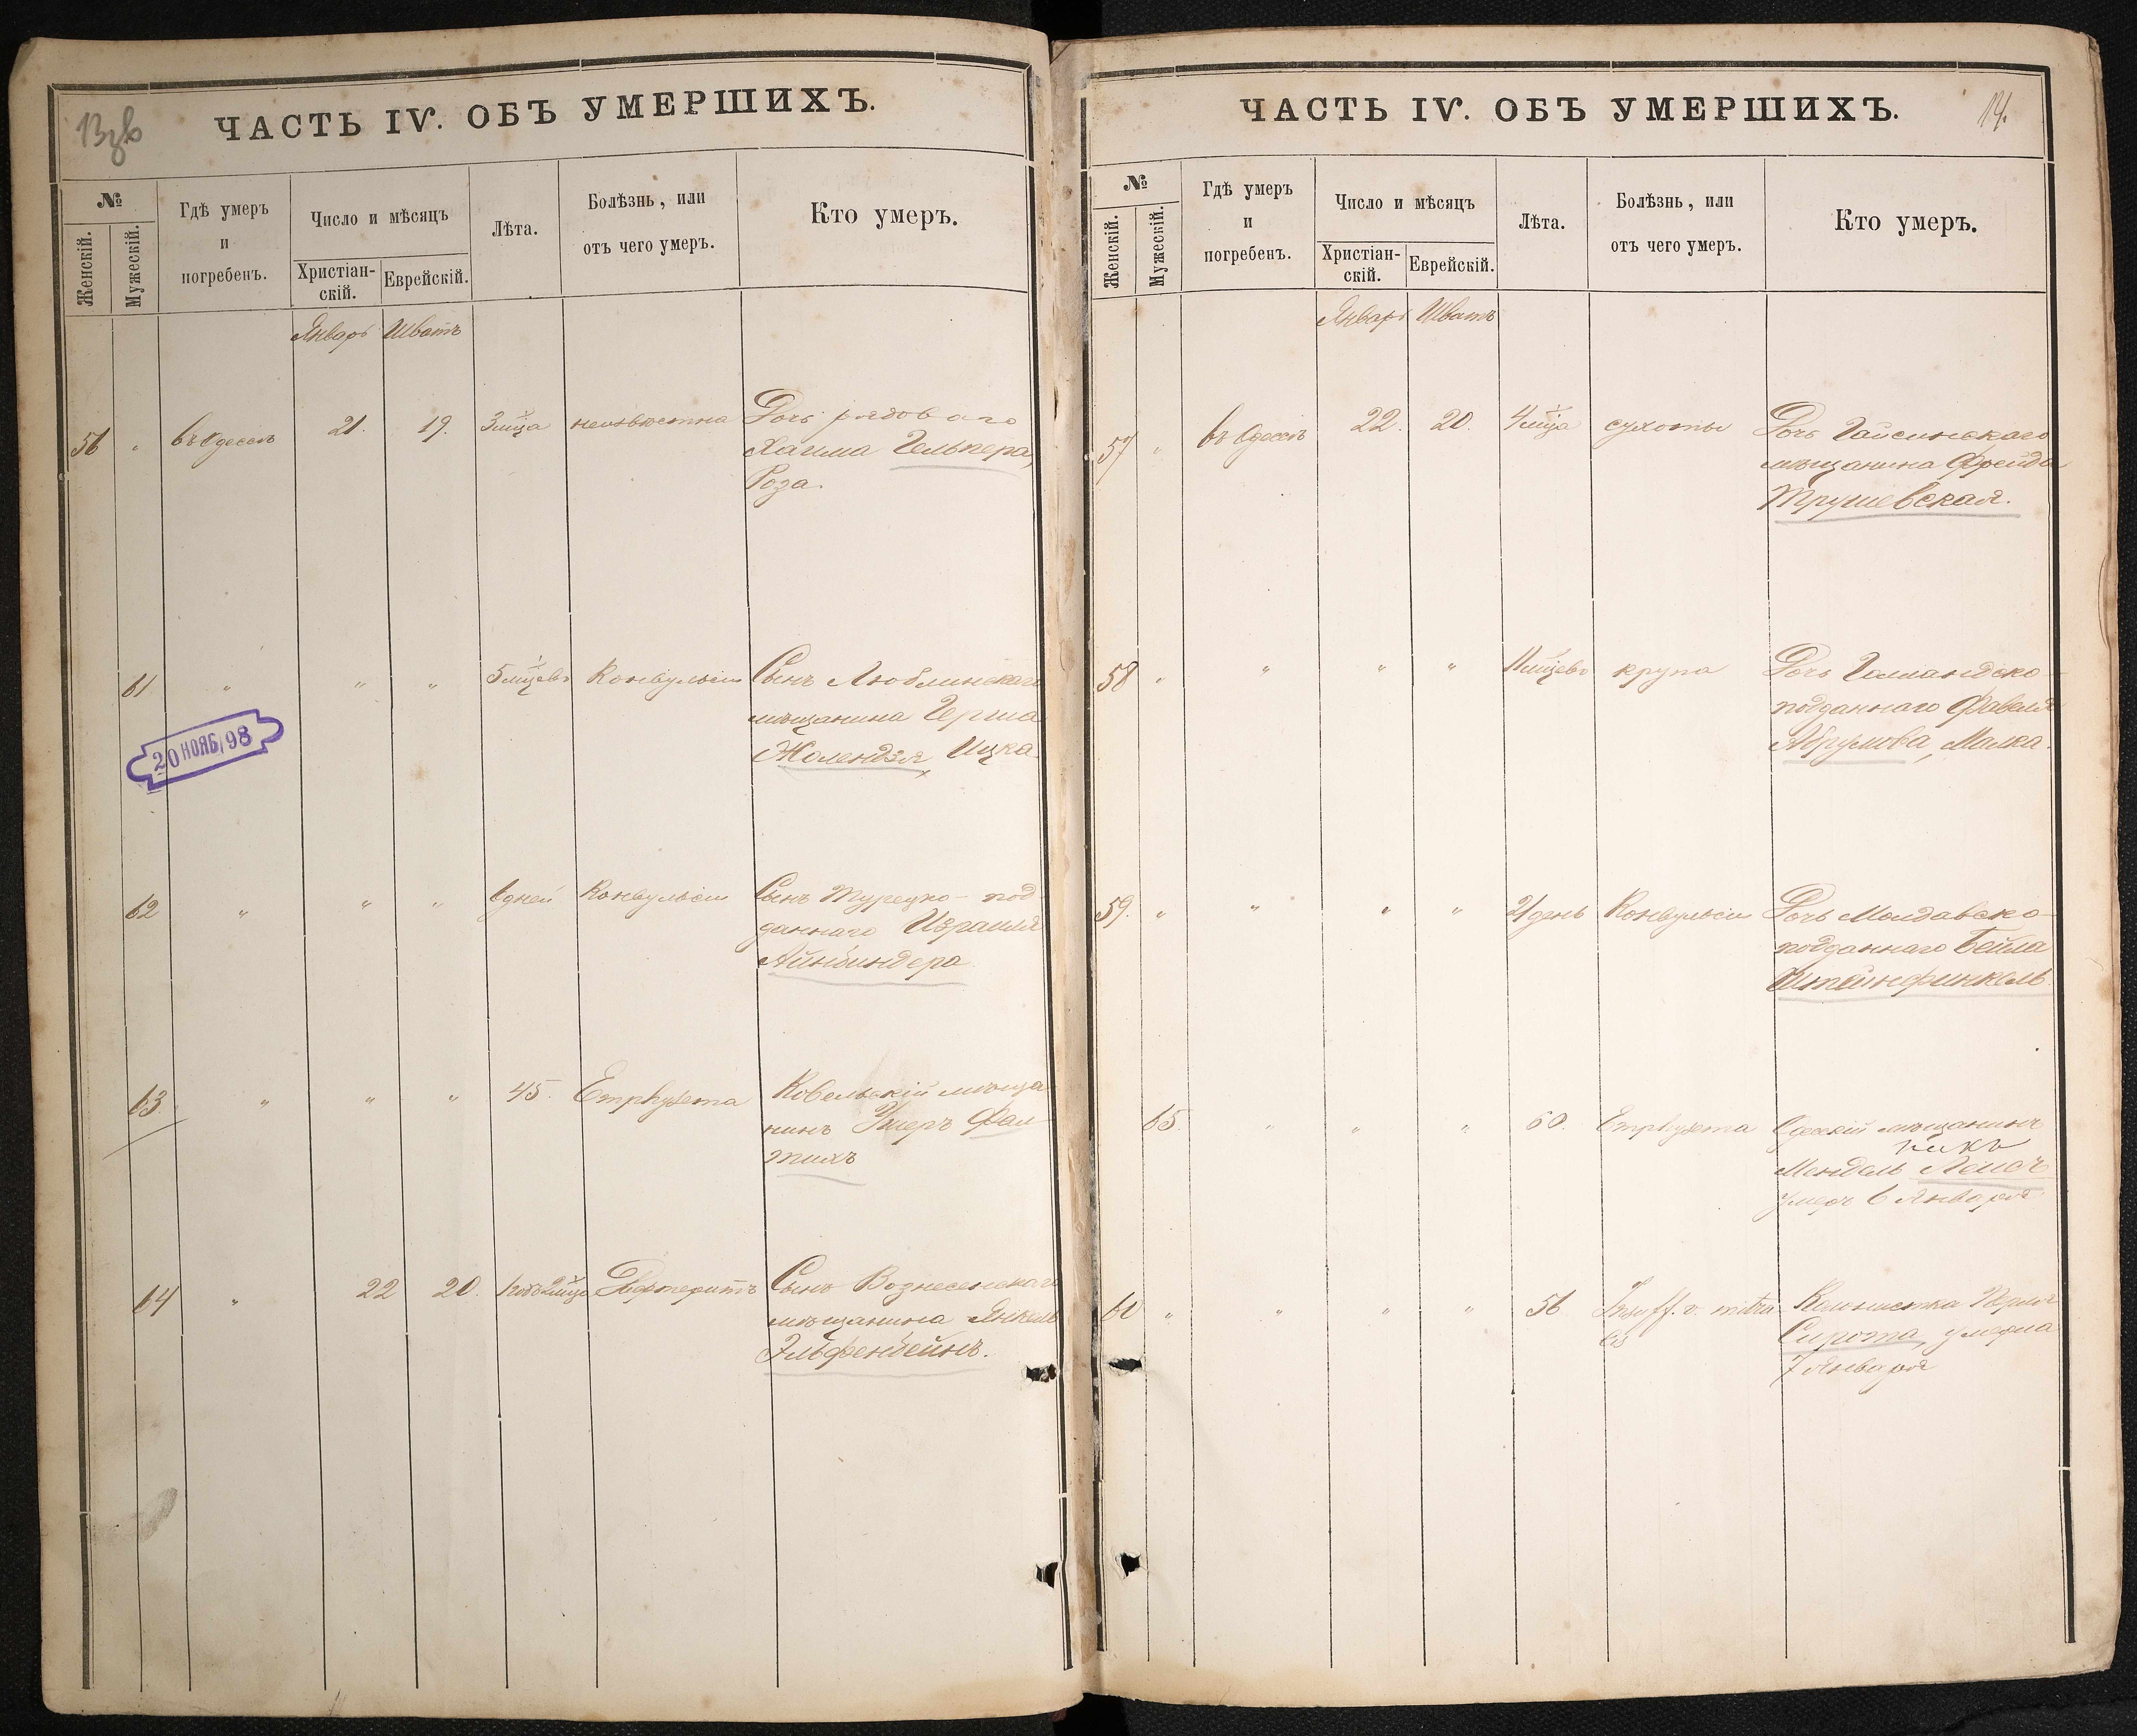 13 об
ЧАСТЬ IV. ОБЪ УМЕРШИХЪ.
№
Женскій.
Мужескій.
Гдѣ умеръ
и
погребенъ.
Число и мѣсяцъ
Христіан-
скій.
Еврейскій.
Лѣта.
Болѣзнь, или
отъ чего умеръ.
Кто умеръ.
Январь Шватъ
56 " въ Одессѣ 21. 19. 3 м-ца неизвѣстна Дочь рядового
Хаима Гельпера,
Роза.
61 " " " 5 м-цевъ Конвульсіи Сынъ Люблинскаго
мѣщанина Герша
Жолендзя, Ицка
20 НОЯБ 98
62 " " " 6 дней Конвульсіи Сынъ Турецко-под
даннаго Израиля
Айнбиндера
63 " " " 45. Emphysema Ковельскій мѣща
нинъ Ушеръ Фал
тихъ
64 " 22 20. 1 годъ 2 м-ца Дифтеритъ Сынъ Вознесенскаго
мѣщанина Янкель
Эльфенбейнъ.
ЧАСТЬ IV. ОБЪ УМЕРШИХЪ.
14.
№
Женскій.
Мужескій.
Гдѣ умеръ
и
погребенъ.
Число и мѣсяцъ
Христіан-
скій.
Еврейскій.
Лѣта.
Болѣзнь, или
отъ чего умеръ.
Кто умеръ.
Январь Шватъ
57 " въ Одессѣ 22. 20. 4 м-ца сухоты Дочь Гайсинскаго
мѣщанина Фрейда
Трушевская.
58 " " " " 11 м-цевъ крупа Дочь Голландско-
подданнаго Фавеля
Абрумова, Малка.
59. " " " " 21 день Конвульсіи Дочь Молдавско-
подданнаго Бейла
Штейнфинкель
65. " " " 60. Emphysema Одесскій мѣщанинъ
Мендель
умеръ 6 Января
60 " " " " 56 Insuff. v. mitra
lis
Колонистка Перля
Сирота, умерла
7 Января